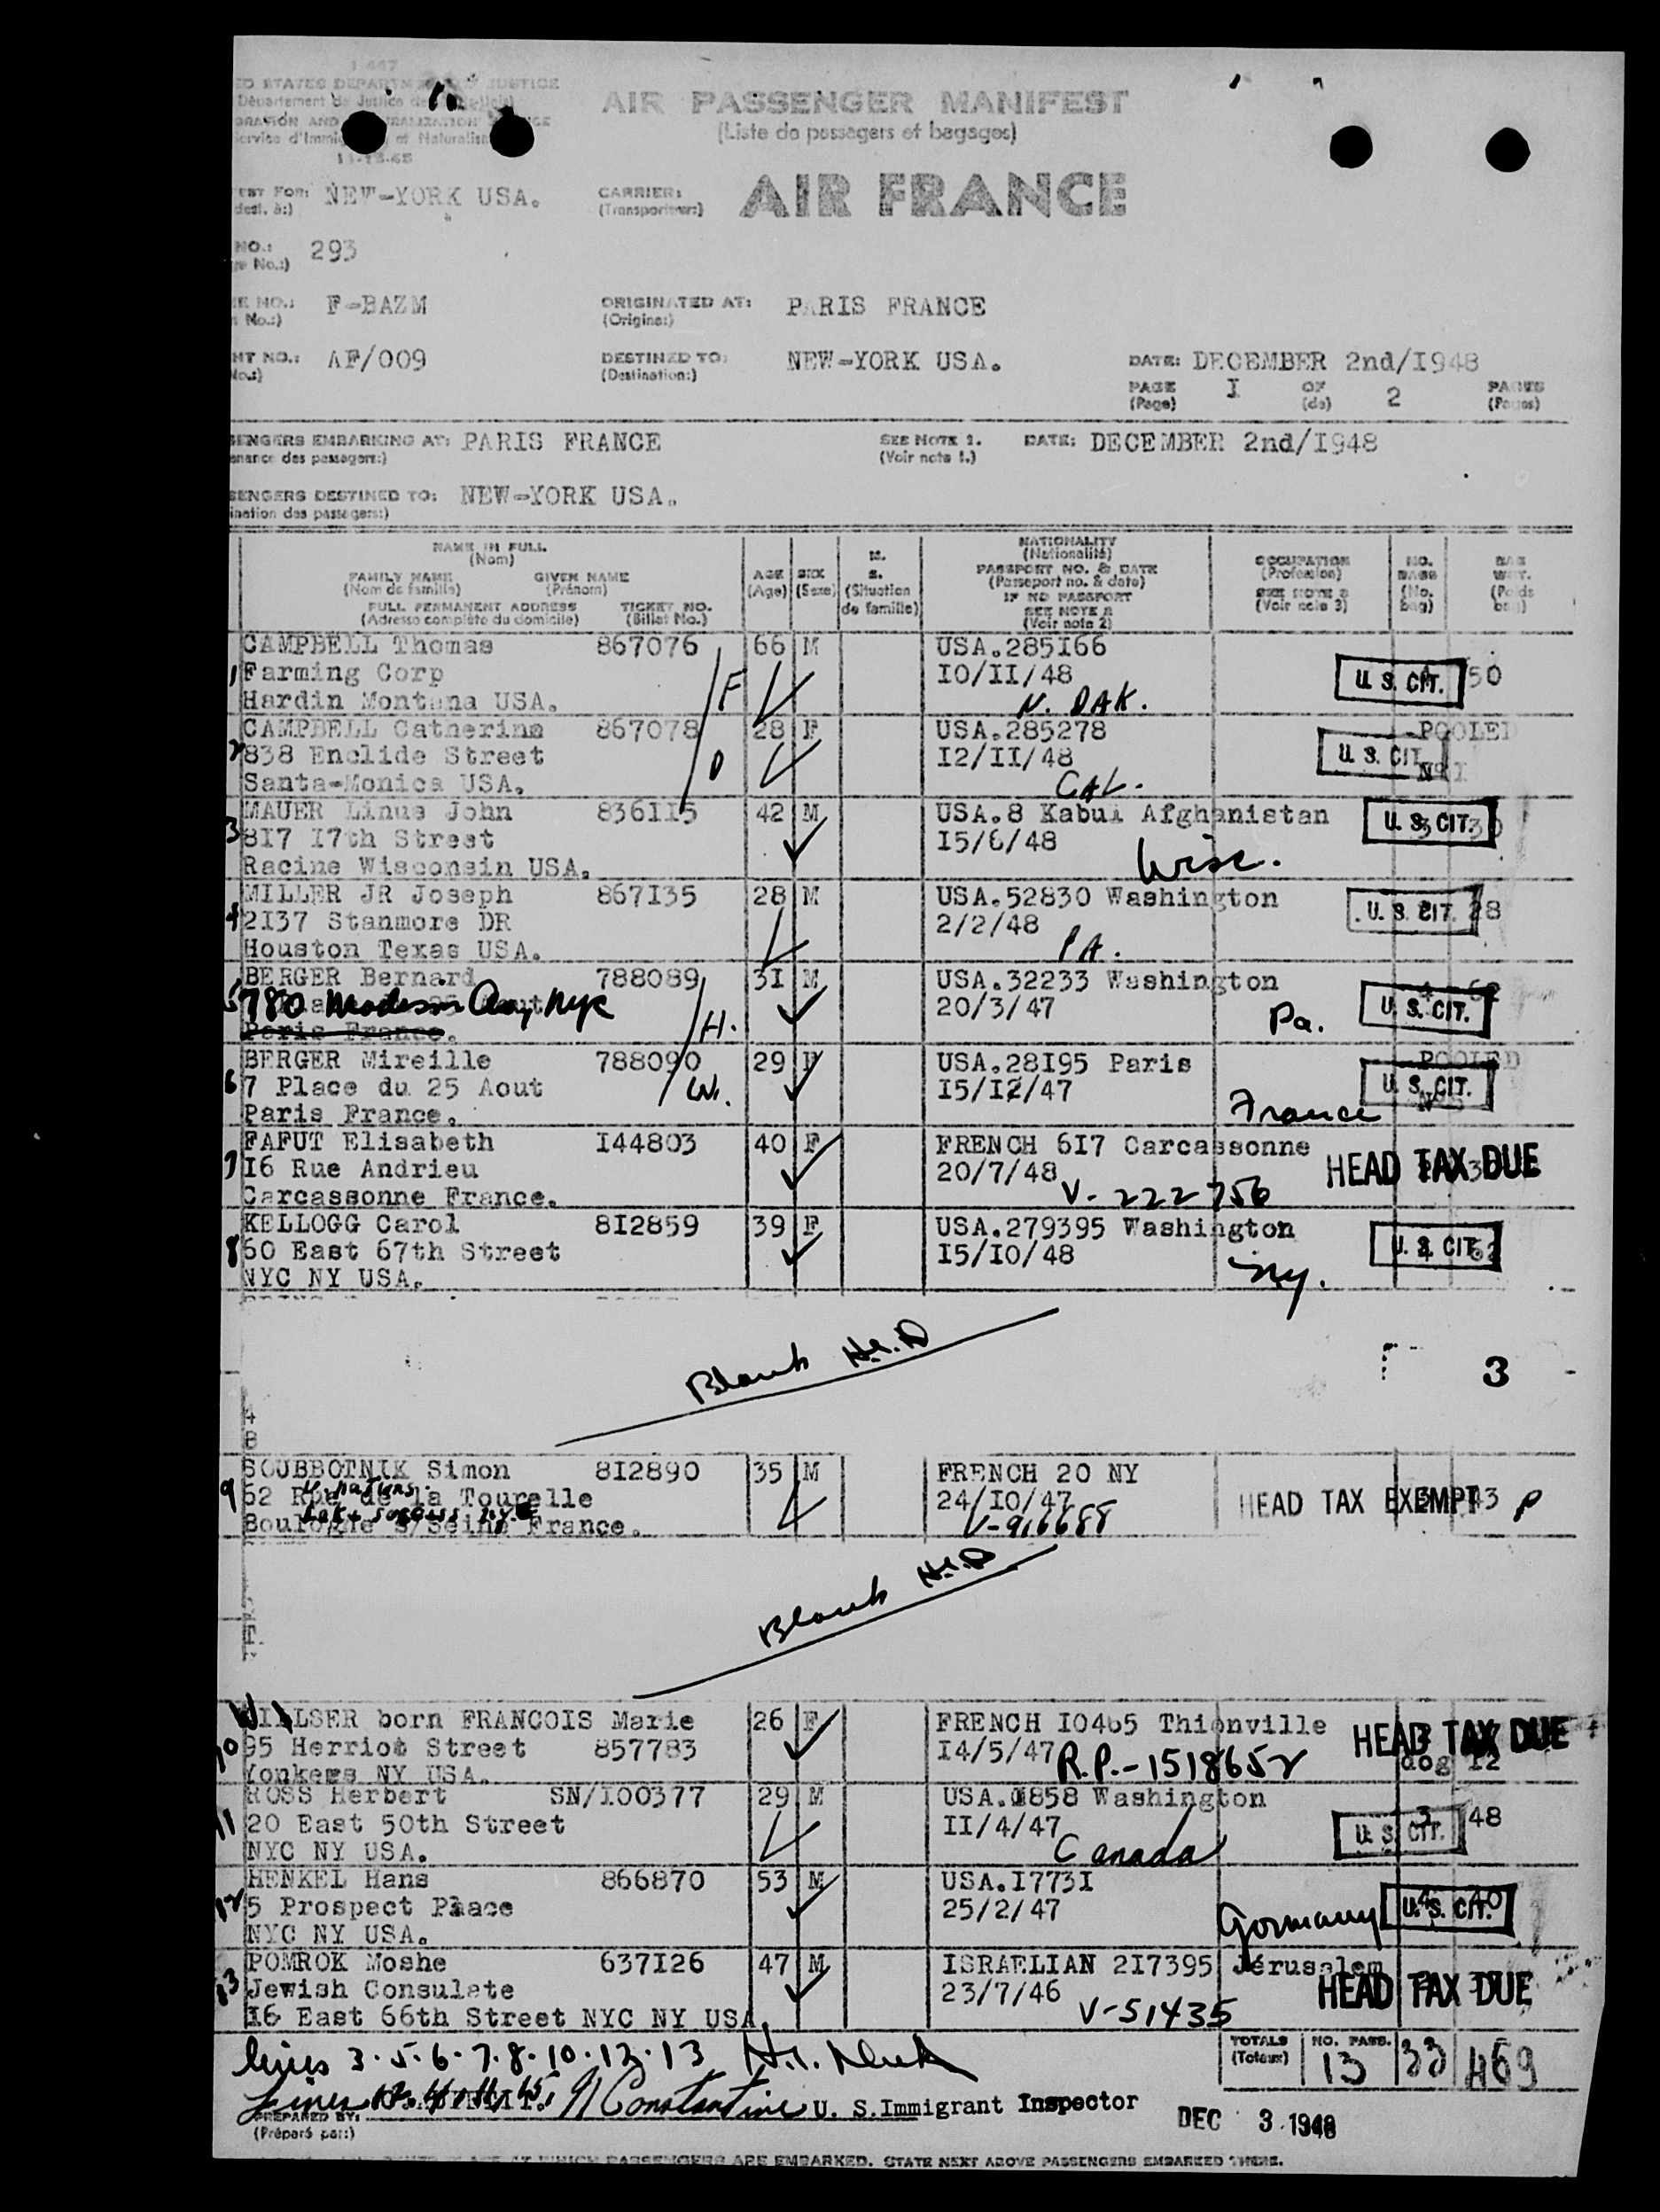 I 447
ED STATES DEPARTMENT OF JUSTICE
Département de Justice
11-18-65
AIR PASSENGER MANIFEST
(Liste de passagers et bagages)
EST FOR: NEW-YORK USA.
dest. à:)
CARRIER: AIR FRANCE
(Transporteur:)
NO.: 293
No.:)
NO.: F-BAZM
No.:)
ORIGINATED AT: PARIS FRANCE
(Origine:)
HT NO.: AF/009
No.:)
DESTINED TO: NEW-YORK USA.
(Destination:)
DATE: DECEMBER 2nd/I948
PAGE I OF 2 PAGES
(Page) (de) (Pages)
SENGERS EMBARKING AT: PARIS FRANCE
enance des passagers:)
SEE NOTE 1.
(Voir note 1.)
DATE: DECEMBER 2nd/I948
SENGERS DESTINED TO: NEW-YORK USA.
ination des passagers:)
NAME IN FULL
(Nom)
FAMILY NAME GIVEN NAME
(Nom de famille) (Prénom)
FULL PERMANENT ADDRESS TICKET NO.
(Adresse complète du domicile) (Billet No.)
AGE
(Age)
SEX
(Sexe)
M.
S.
(Situation
de famille)
NATIONALITY
(Nationalité)
PASSPORT NO. & DATE
(Passeport no. & date)
IF NO PASSPORT
SEE NOTE 2
(Voir note 2)
OCCUPATION
(Profession)
SEE NOTE 3
(Voir note 3)
NO.
BAGS
(No.
bag)
BAG
WGT.
(Poids
bag)
CAMPBELL Thomas 867076 66 M USA.285I66
1 Farming Corp F IO/II/48 U. S. CIT. 50
Hardin Montana USA. N. DAK.
CAMPBELL Catherine 867078 28 F USA.285278 POOLED
2 838 Enclide Street D I2/II/48 U. S. CIT
Santa-Monica USA. CAL.
MAUER Linus John 836II5 42 M USA.8 Kabul Afghanistan U. S. CIT. 30
3 8I7 I7th Street I5/6/48
Racine Wisconsin USA. Wisc.
MILLER JR Joseph 867I35 28 M USA.52830 Washington
4 2I37 Stanmore DR 2/2/48 U. S. CIT. 28
Houston Texas USA. PA.
BERGER Bernard 788089 3I M USA.32233 Washington
5 780 Madison Ave, NYC 20/3/47 Pa. U. S. CIT.
Paris France. H.
BERGER Mireille 788090 29 F USA.28I95 Paris POOLED
6 7 Place du 25 Aout W. I5/I2/47 U. S. CIT.
Paris France. France
FAFUT Elisabeth I44803 40 F FRENCH 6I7 Carcassonne
7 I6 Rue Andrieu 20/7/48 HEAD TAX DUE
Carcassonne France. V-222756
KELLOGG Carol 8I2859 39 F USA.279395 Washington
8 60 East 67th Street I5/IO/48 U. S. CIT.
NYC NY USA. NY.
Blank H.I.D
3
SOUBBOTNIK Simon 8I2890 35 M FRENCH 20 NY
9 62 Rue de la Tourelle 24/IO/47 HEAD TAX EXEMPT 43 P
U. Nations.
Lake Success N.Y.
Boulogne s/Seine France. V-916688
Blank H.I.D
WILLSER born FRANCOIS Marie 26 F FRENCH IO465 Thionville
10 95 Herriot Street 857783 I4/5/47 HEAD TAX DUE
Yonkers NY USA. R.P.-1518652 dog I2
ROSS Herbert SN/I00377 29 M USA. 858 Washington
11 20 East 50th Street II/4/47 3 48
NYC NY USA. Canada U. S. CIT.
HENKEL Hans 866870 53 M USA.I773I
12 5 Prospect Place 25/2/47 Germany U. S. CIT.
NYC NY USA.
POMROK Moshe 637I26 47 M ISRAELIAN 2I7395 Jérusalem
13 Jewish Consulate 23/7/46 HEAD TAX DUE
I6 East 66th Street NYC NY USA. V-51435
TOTALS NO. PASS.
(Totaux) 13 33 469
lines 3.5.6.7.8.10.12.13
Lines Constantine U. S. Immigrant Inspector
PREPARED BY:
(Préparé par:)
DEC 3 1948
WHICH PASSENGERS ARE EMBARKED. STATE NEXT ABOVE PASSENGERS EMBARKED THERE.